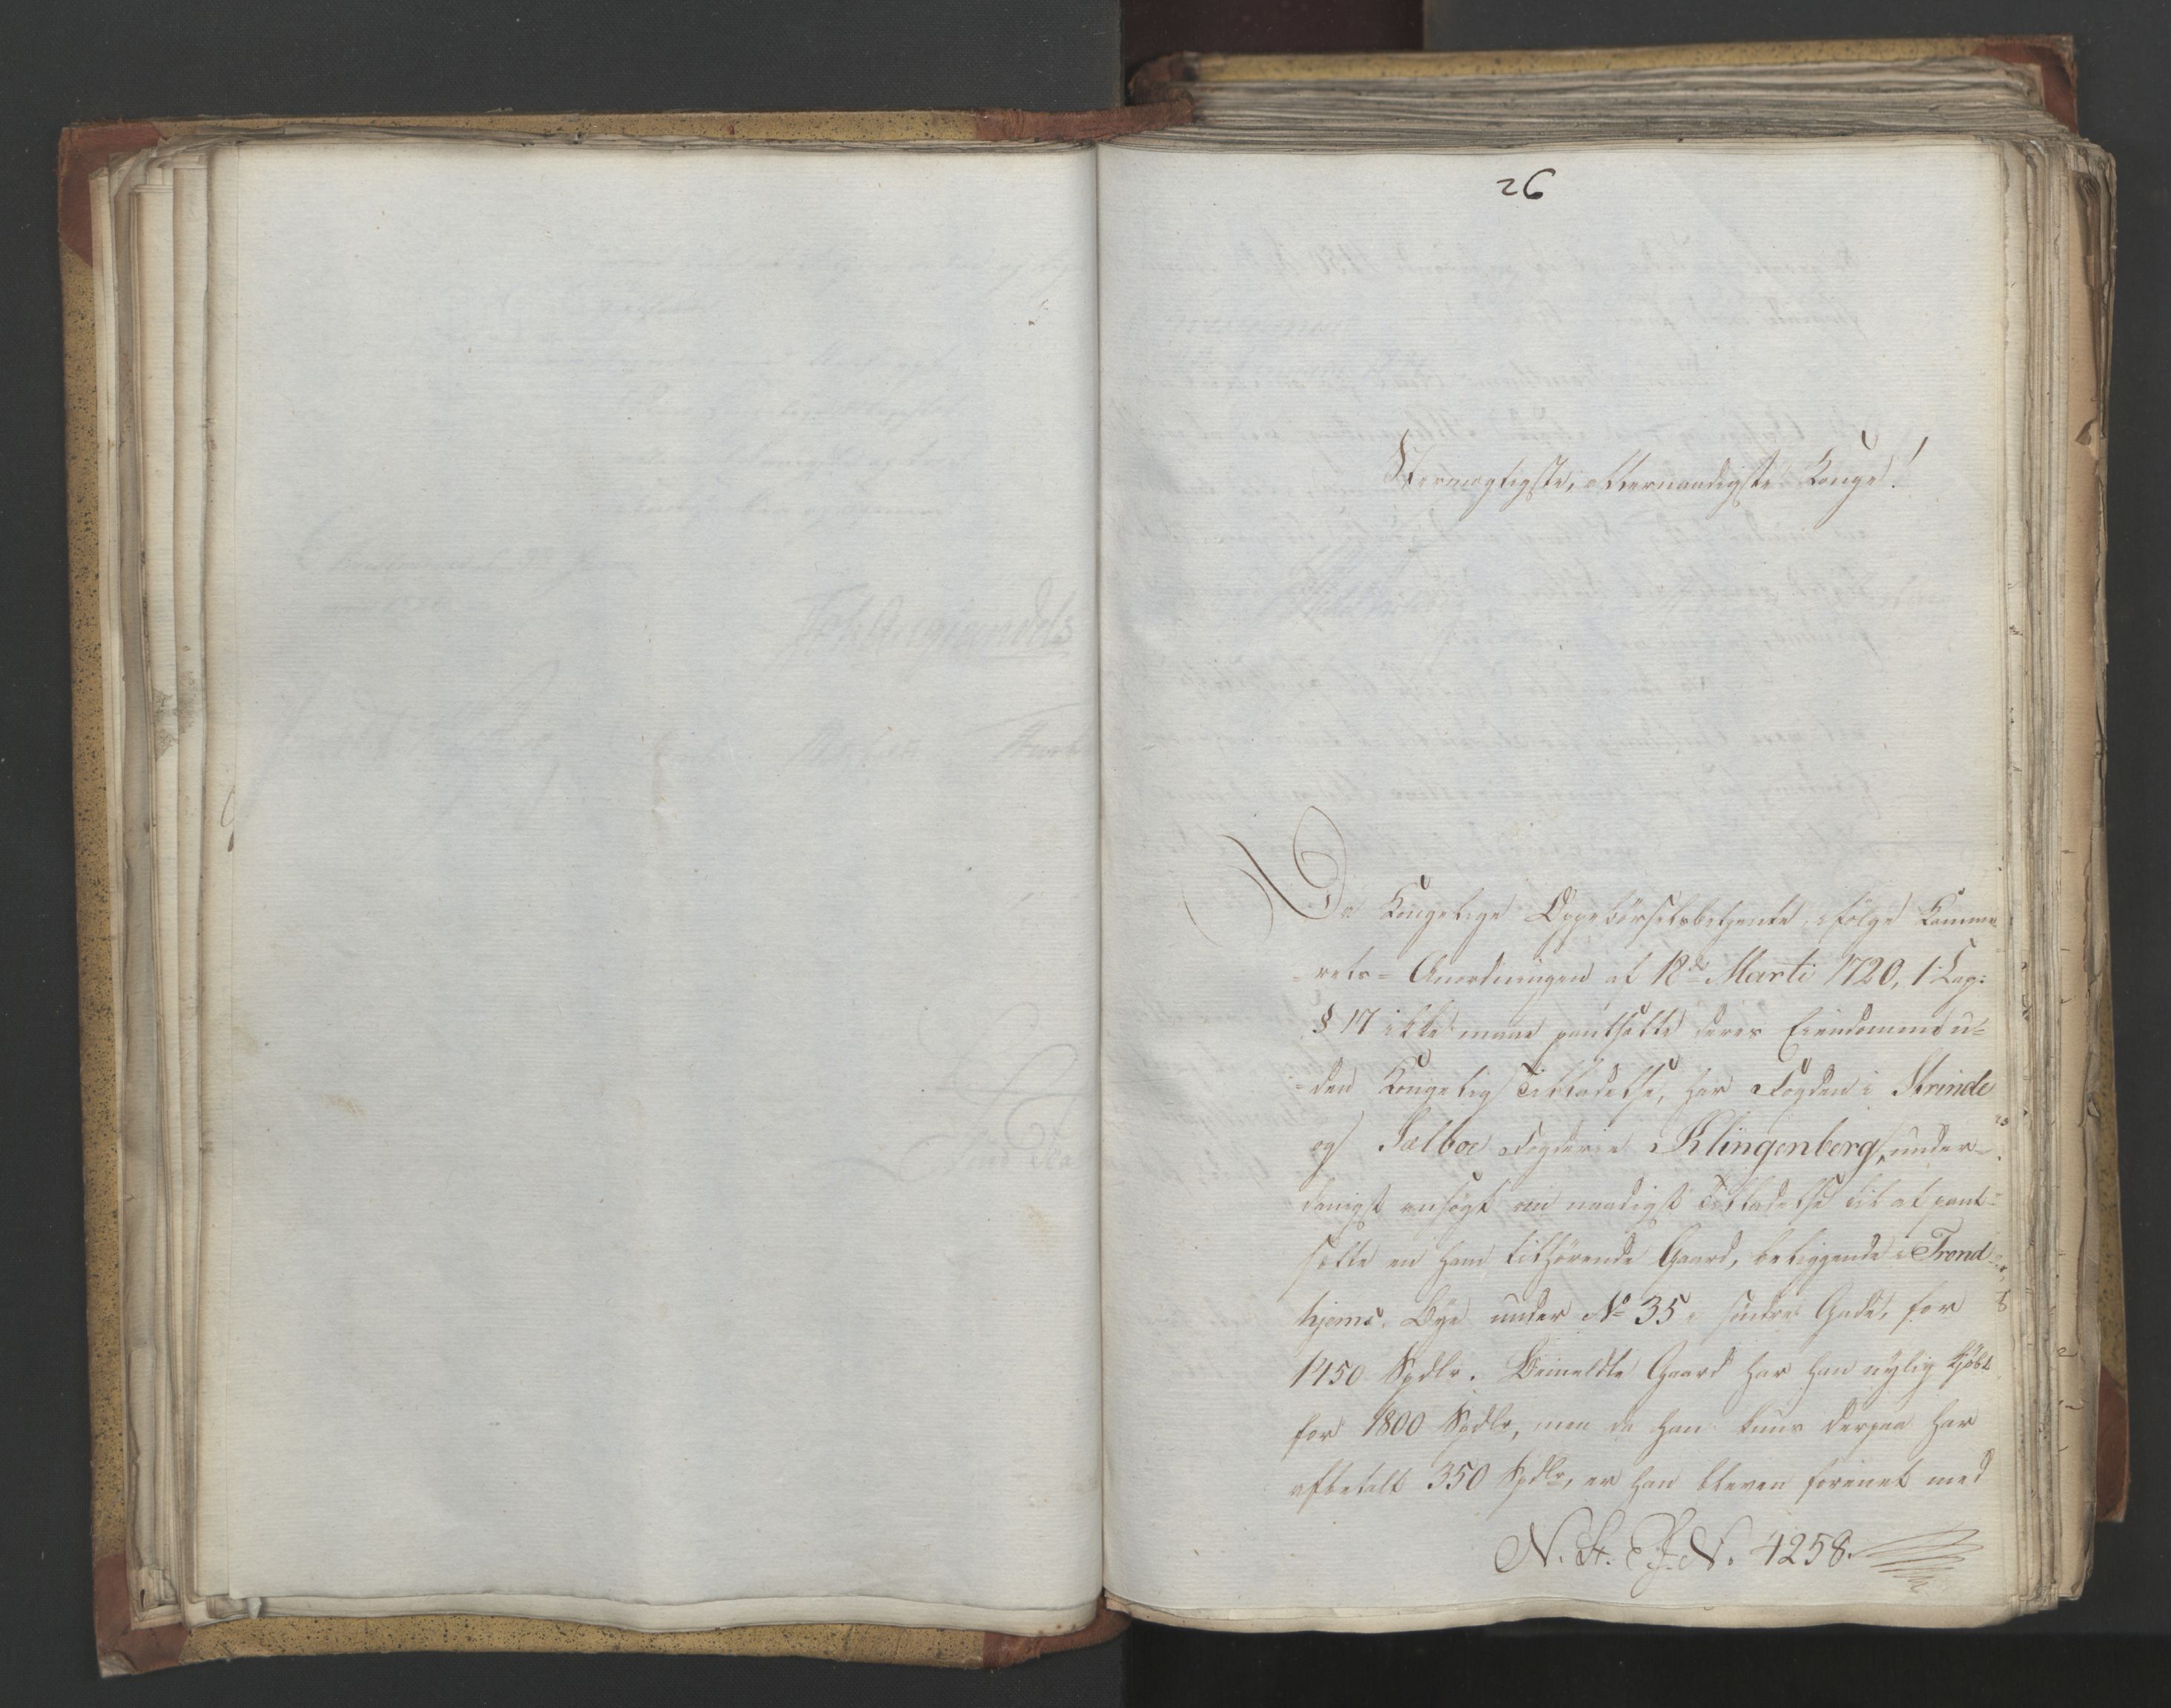 26
Stormægtigste, Allernaadigste Konge!
Da Kongelige Oppebørselsbetjente, ifølge Kamme
rets- Anordningen af 18de Martii 1720, 1 Cap:
§ 17 ikke maae pantsætte deres Eiendomme u-
den Kongelig Tilladelse, har Fogden i Strinde
og Sælboe Fogderie Klingenberg, under-
danigst ansøgt om naadigst Tilladelse til at pant-
sætte en ham tilhørende Gaard, beliggende i Trond-
hjems Bye under No 35 i søndre Gade, for
1450 Spdlr. Bemeldte Gaard har han nylig kjøbt
for 1800 Spdlr, men da han kuns derpaa har
afbetalt 350 Spdlr, er han bleven forenet med
N. St. E. J. N. 4258.